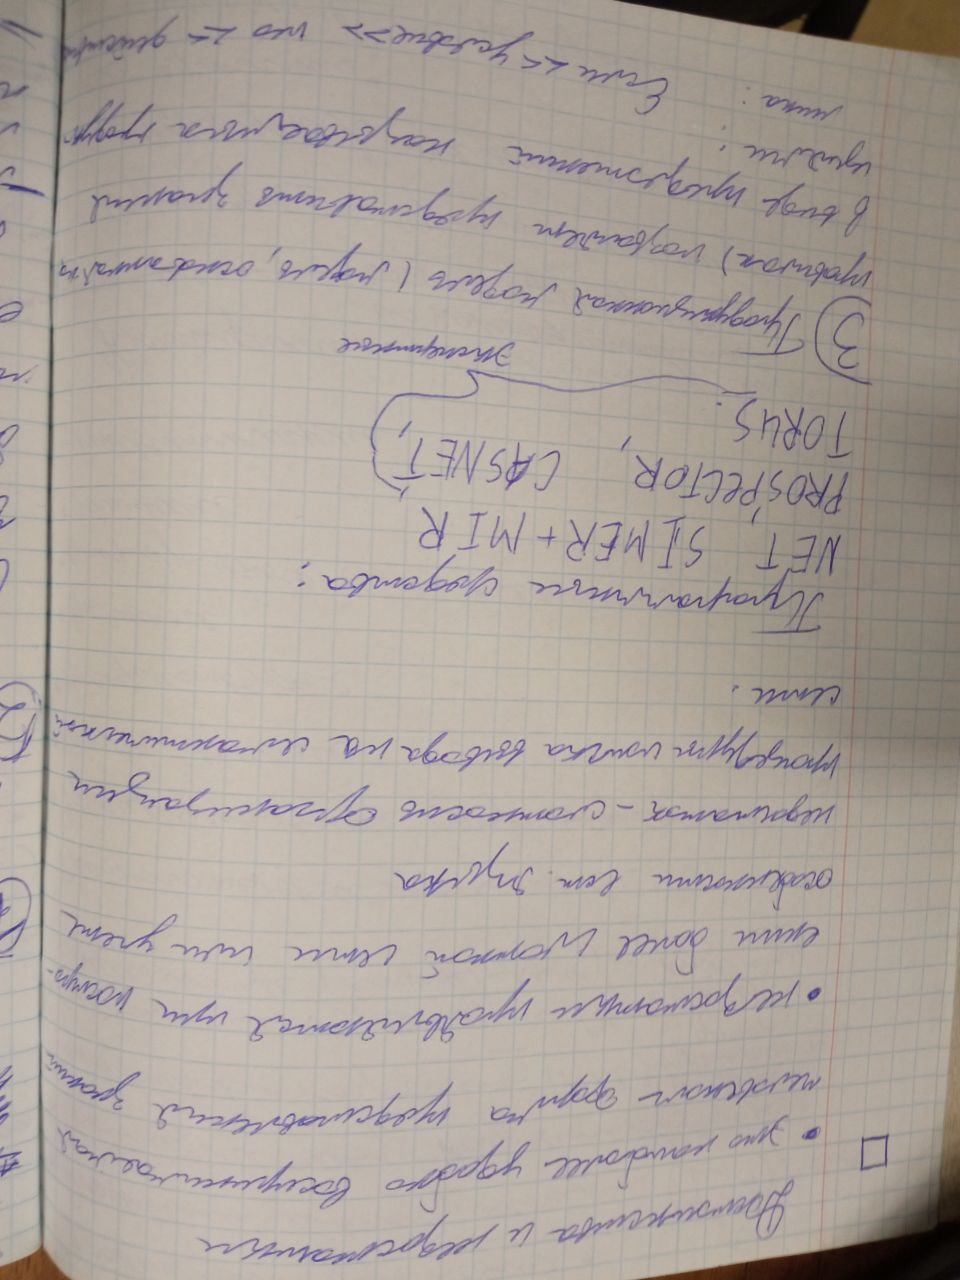 Достоинства и недостатки
• это наиболее удобно воспринимаемая
человеком форма представления знаний
• недостатки проявляются при постро-
ении более сложной сети или учете
особенности ест. языка
недостаток - сложность организации
процедуры поиска вывода на семантической
сети.
Программные средства:
NET, SIMER+MIR,
PROSPECTOR, CASNET,
TORUS.
экспертные
3) Продукционная модель (модель, основанная на
правилах) позволяет представить знания
в виде предложений называемых продук-
циями.
типа: Если <<условие>> то << действие